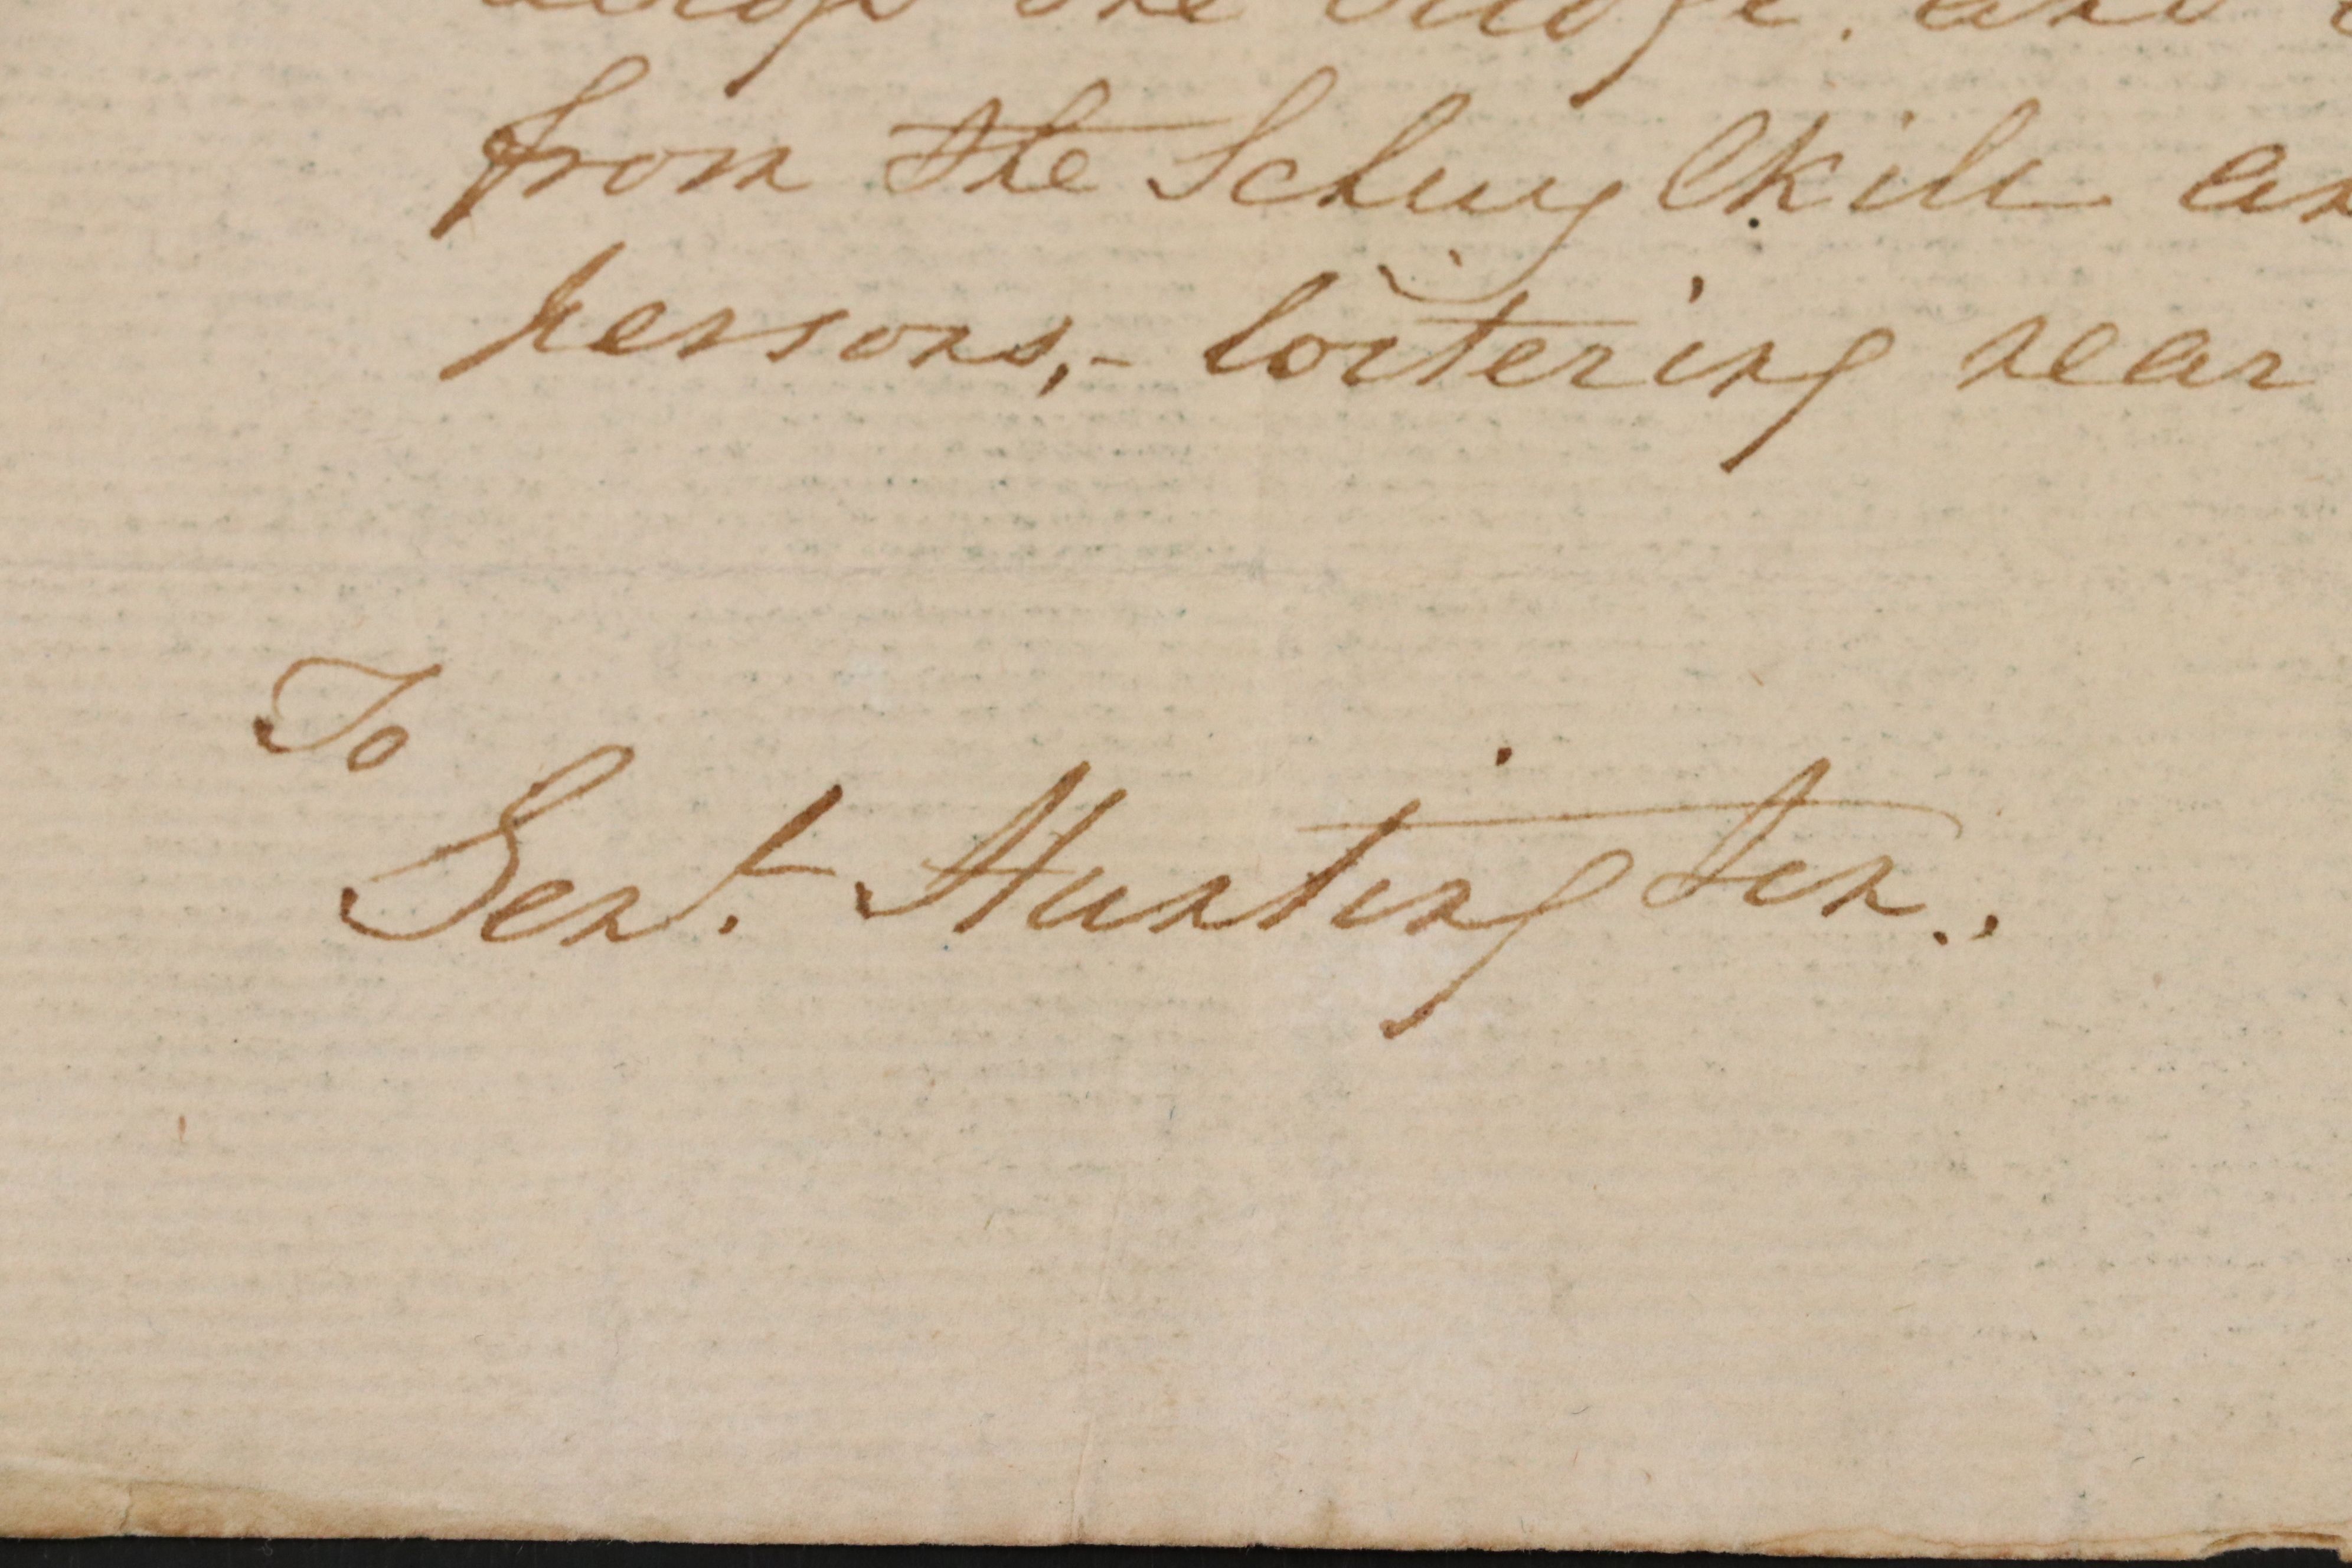 across the bridge. and
from the Schuylkill
persons,- loitering near
To
Genl. Huntington..